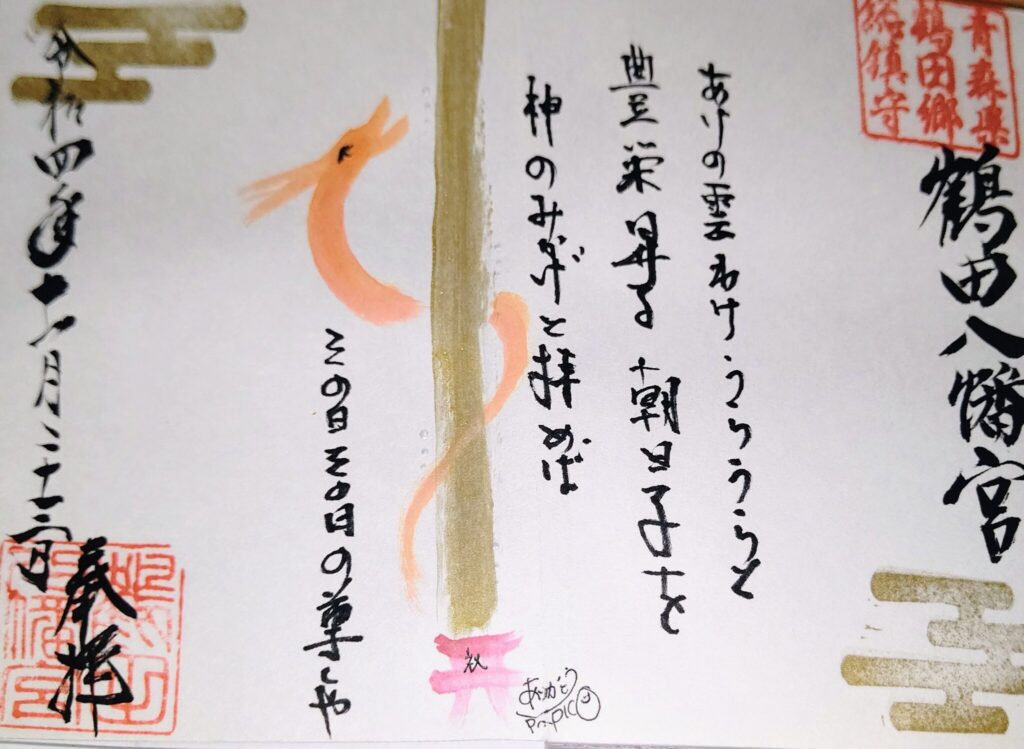 青森県
鶴田郷
総鎮守
鶴田八幡宮
あけの雲わけうらうらと
豊栄昇る朝日子を
神のみかげと拝めば
その日その日の尊しや
奉拝
令和四年十一月二十三日
ありがとう